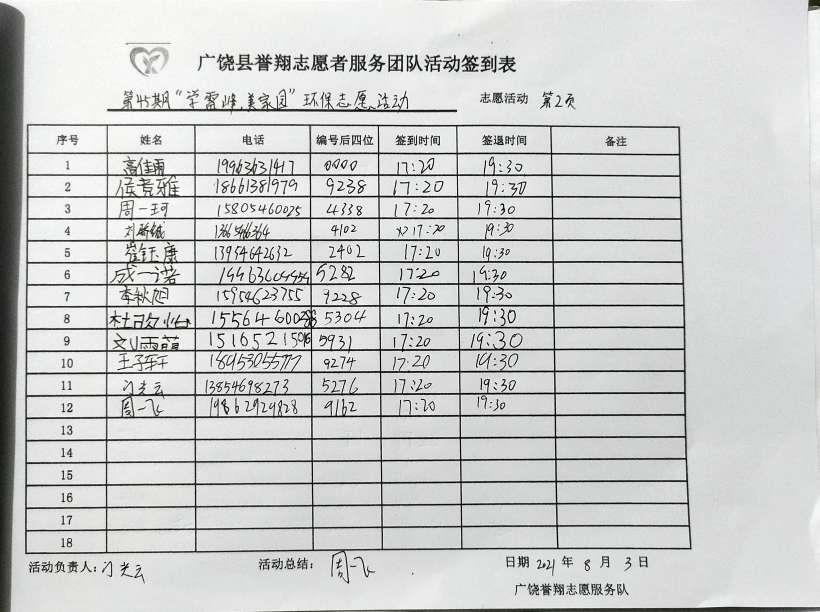 广饶县誉翔志愿者服务团队活动签到表
第45期“学雷峰,美家园”环保志愿活动 志愿活动 第2页
序号 姓名 电话 编号后四位 签到时间 签退时间 备注
1 高佳雨 19963631417 0000 17:20 19:30
2 侯竞雅 18661381979 9238 17:20 19:30
3 周一珂 15805460025 4338 17:20 19:30
4 4102 17:20 19:30
5 崔钰康 13954642632 2402 17:20 19:30
6 成一诺 5282 17:20 19:30
7 李秋旭 15954623755 9228 17:20 19:30
8 杜歆怡 5304 17:20 19:30
9 刘雨萌 5931 17:20 19:30
10 王子轩 9274 17:20 19:30
11 刁光云 13854698273 5276 17:20 19:30
12 周一飞 19862929828 9162 17:20 19:30
13
14
15
16
17
18
活动负责人:刁光云 活动总结: 周一飞 日期 2021 年 8 月 3 日
广饶誉翔志愿服务队